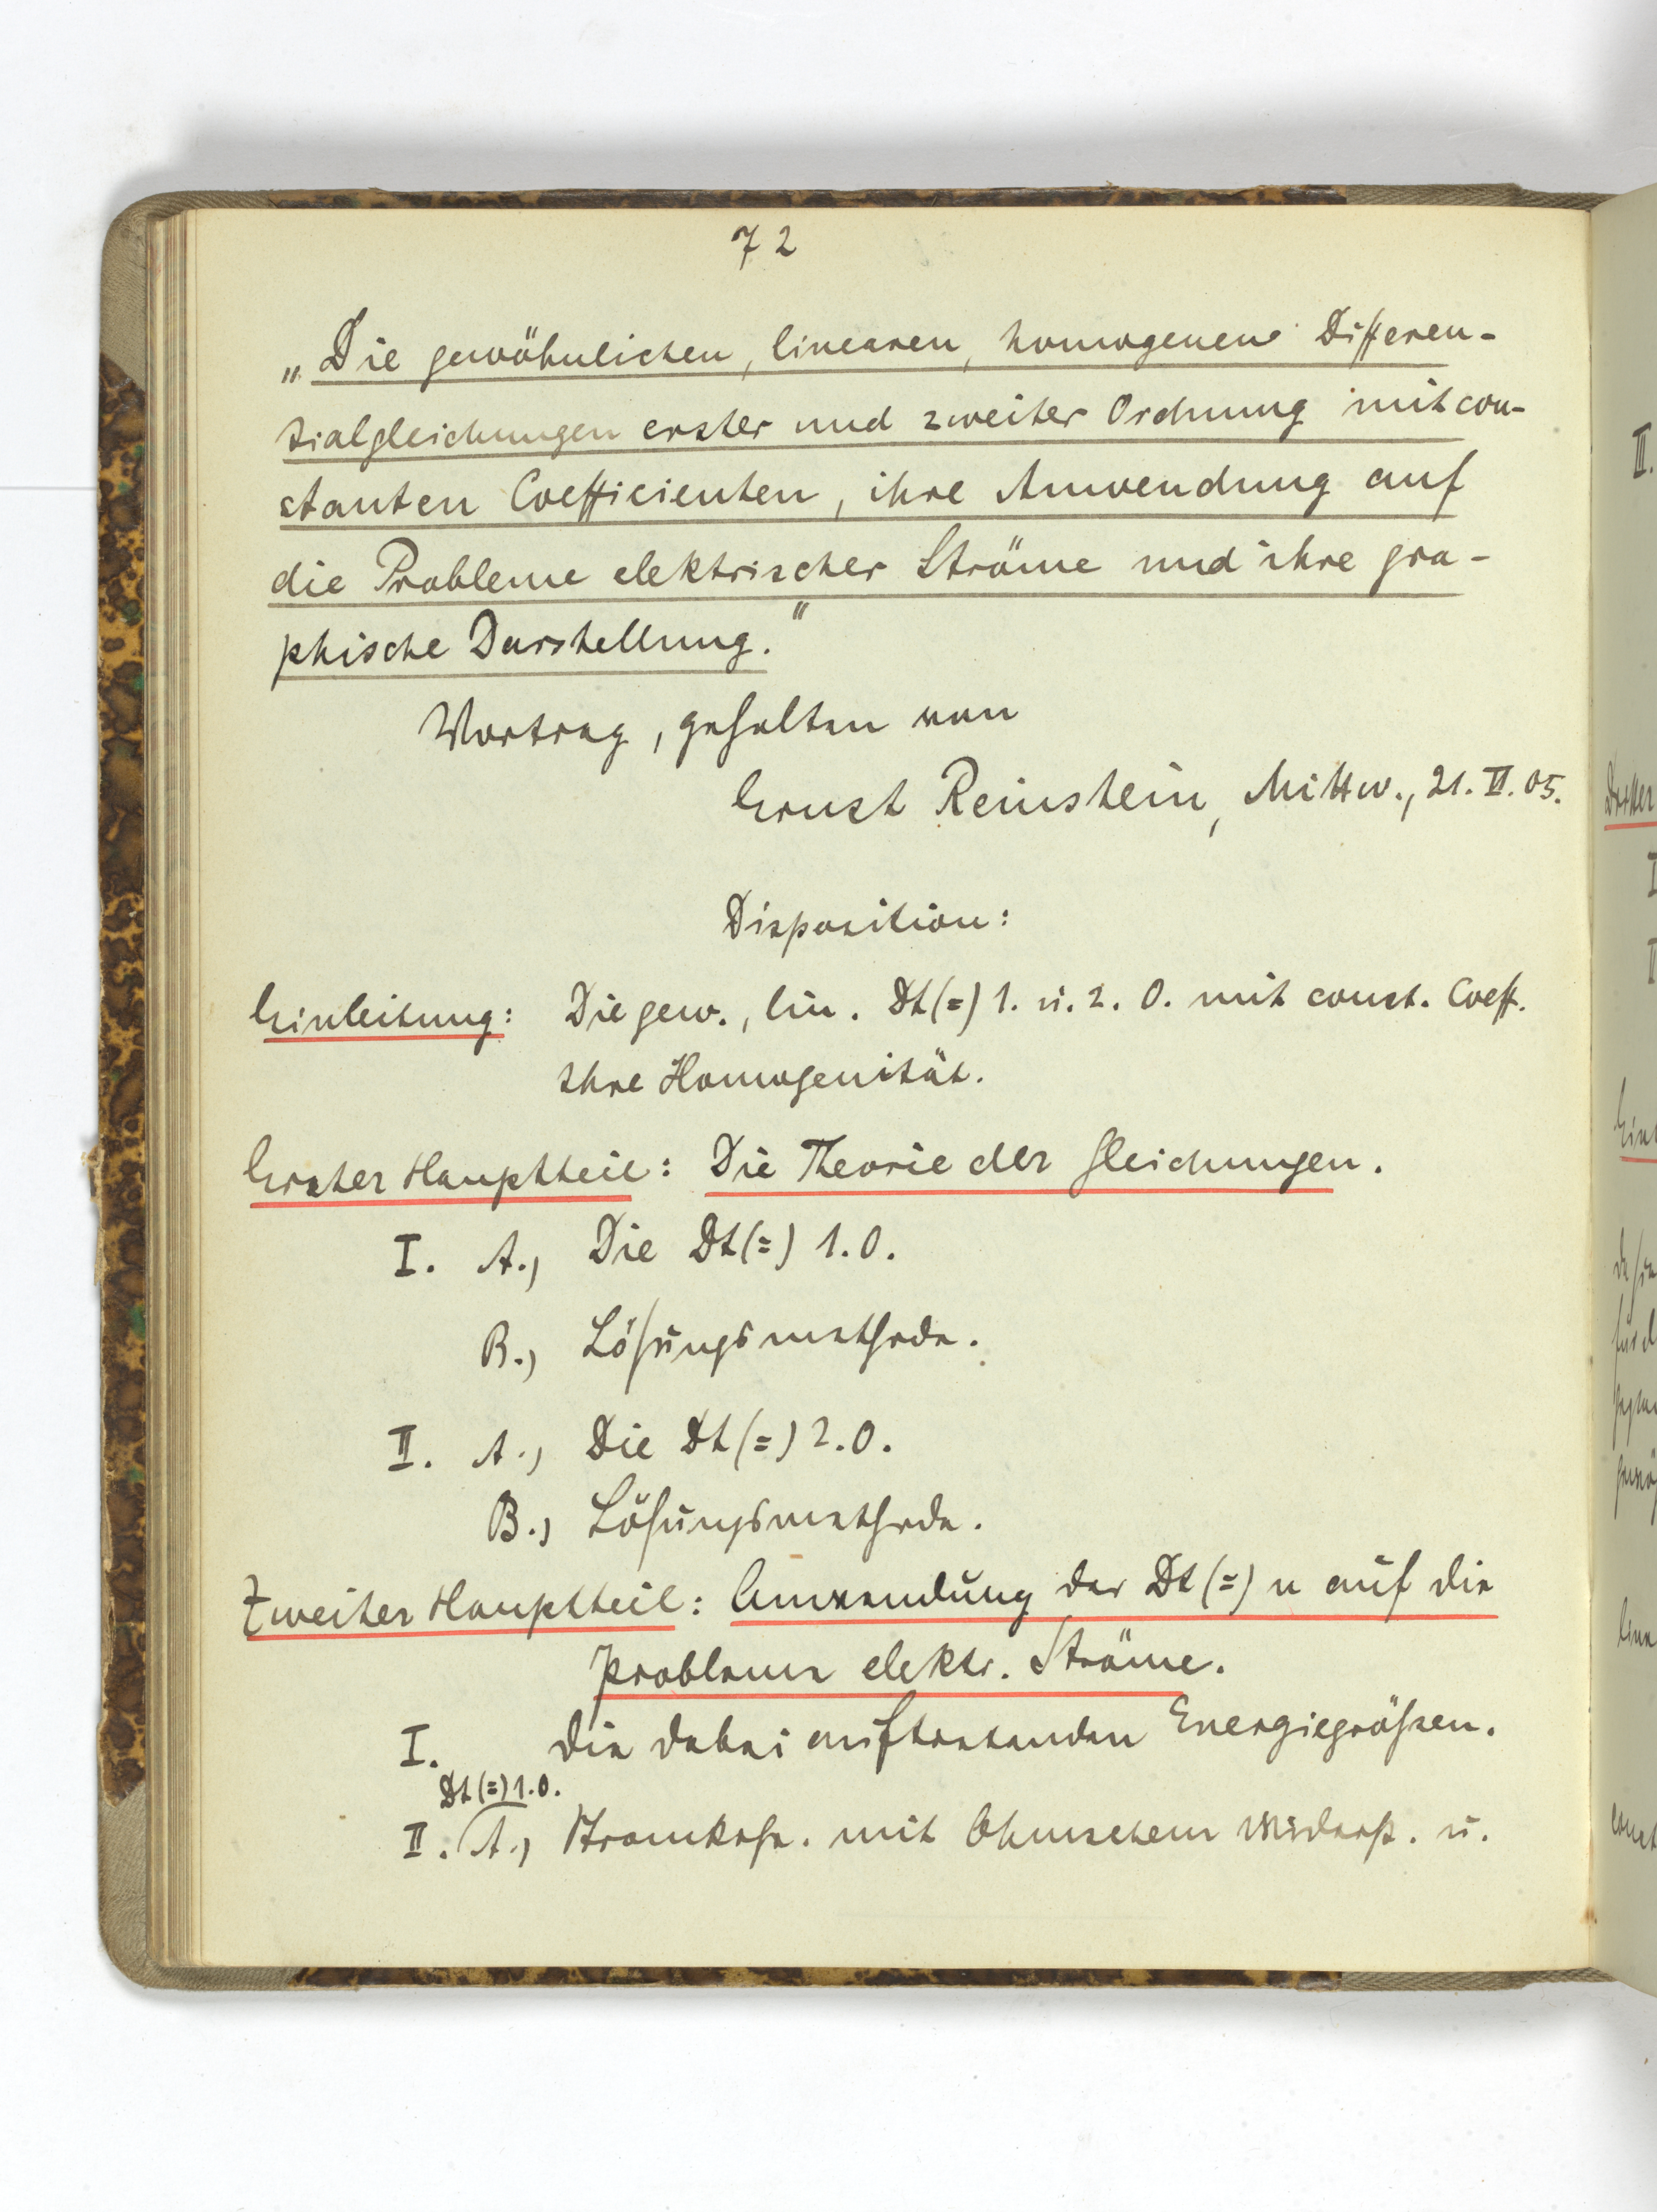 72
„Die gewöhnlichen, linearen, homogenen Differen-
tialgleichungen erster und zweiter Ordnung mit con-
stanten Coefficienten, ihre Anwendung auf
die Probleme elektrischer Ströme und ihre gra-
phische Darstellung."
Vortrag, gehalten von
Ernst Reinstein, Mittw., 21. VI. 05.
Disposition:
Einleitung: Die gew., lin. Dt(=) 1. u. 2. O. mit const. Coeff.
Ihre Homogenität.
Erster Hauptteil: Die Theorie der Gleichungen.
I. A., Die Dt(=) 1. O.
B., Lösungsmethode.
II. A., Die Dt(=) 2. O.
B., Lösungsmethode.
Zweiter Hauptteil: Anwendung der Dt(=)n auf die
Probleme elektr. Ströme.
I. Die dabei auftretenden Energiegrößen.
Dt(=) 1. O.
II. A., Stromkrse. mit Ohmschem Widerst. u.